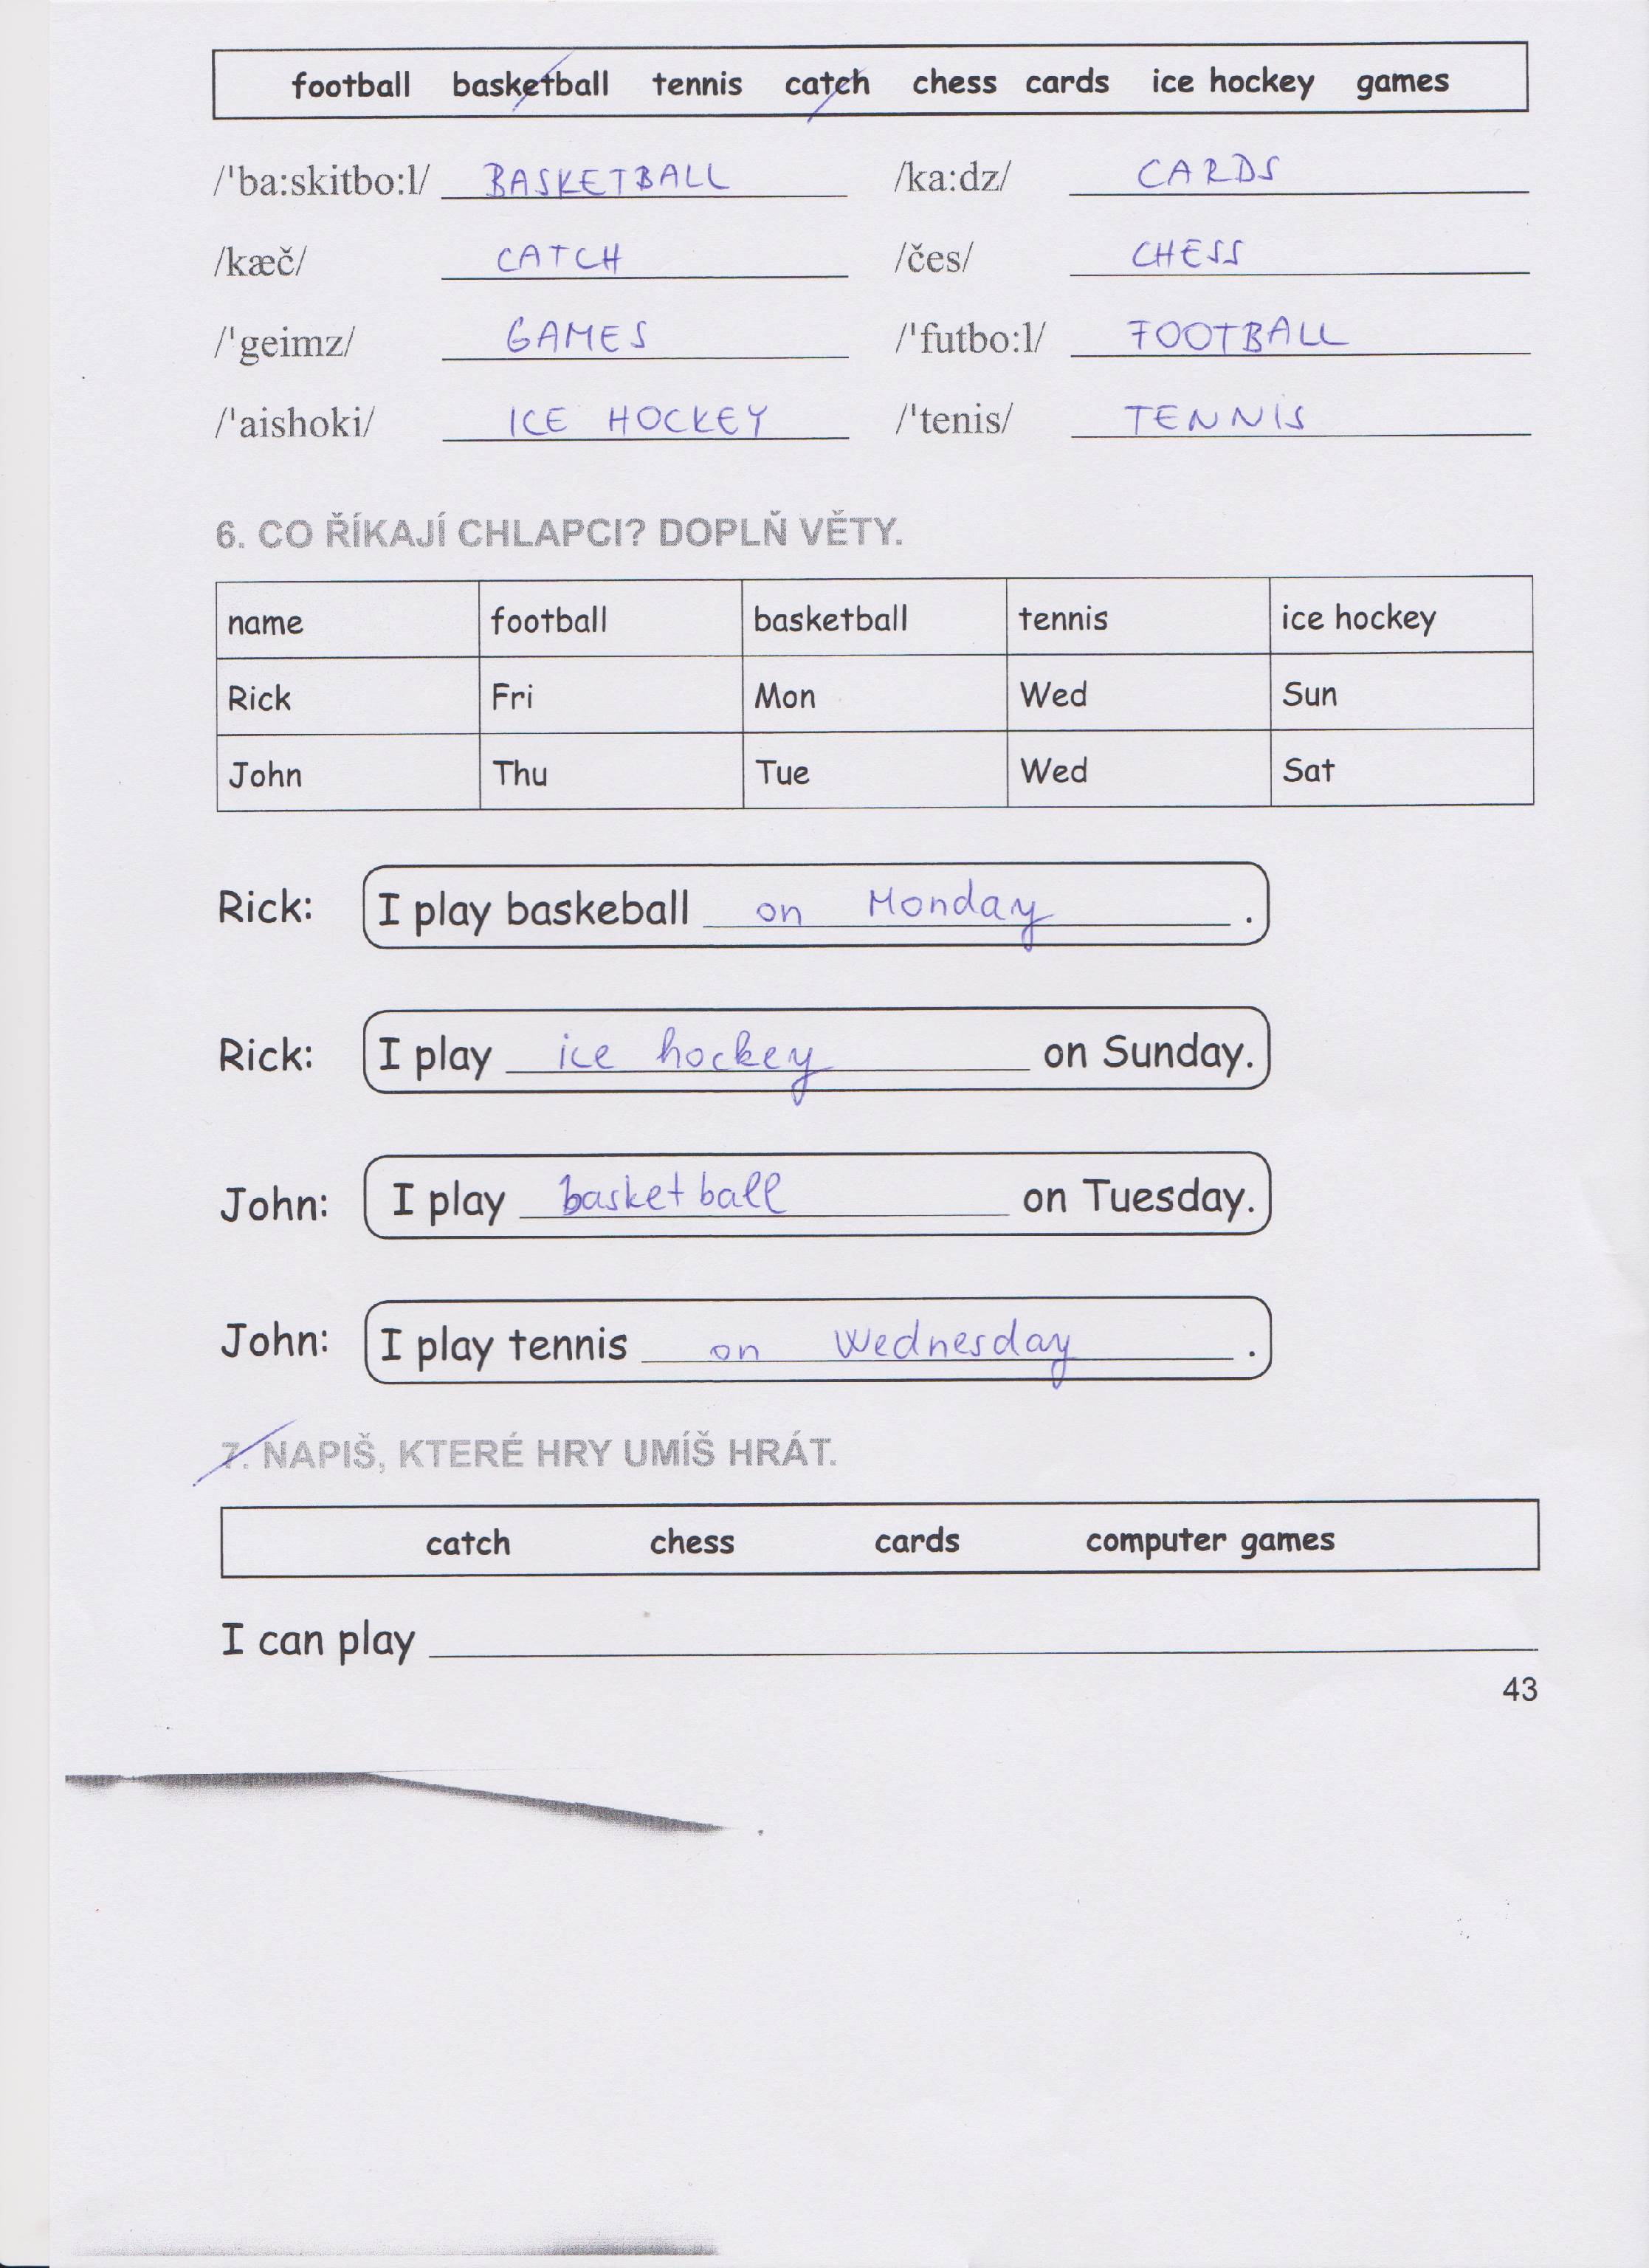 football basketball tennis catch chess cards ice hockey games
/'ba:skitbo:l/ BASKETBALL /ka:dz/ CARDS
/kæč/ CATCH /čes/ CHESS
/'geimz/ GAMES /'futbo:l/ FOOTBALL
/'aishoki/ ICE HOCKEY /'tenis/ TENNIS
6. CO ŘÍKAJÍ CHLAPCI? DOPLŇ VĚTY.
name football basketball tennis ice hockey
Rick Fri Mon Wed Sun
John Thu Tue Wed Sat
Rick: I play baskeball on Monday.
Rick: I play ice hockey on Sunday.
John: I play basketball on Tuesday.
John: I play tennis on Wednesday.
7. NAPIŠ, KTERÉ HRY UMÍŠ HRÁT.
catch chess cards computer games
I can play
43